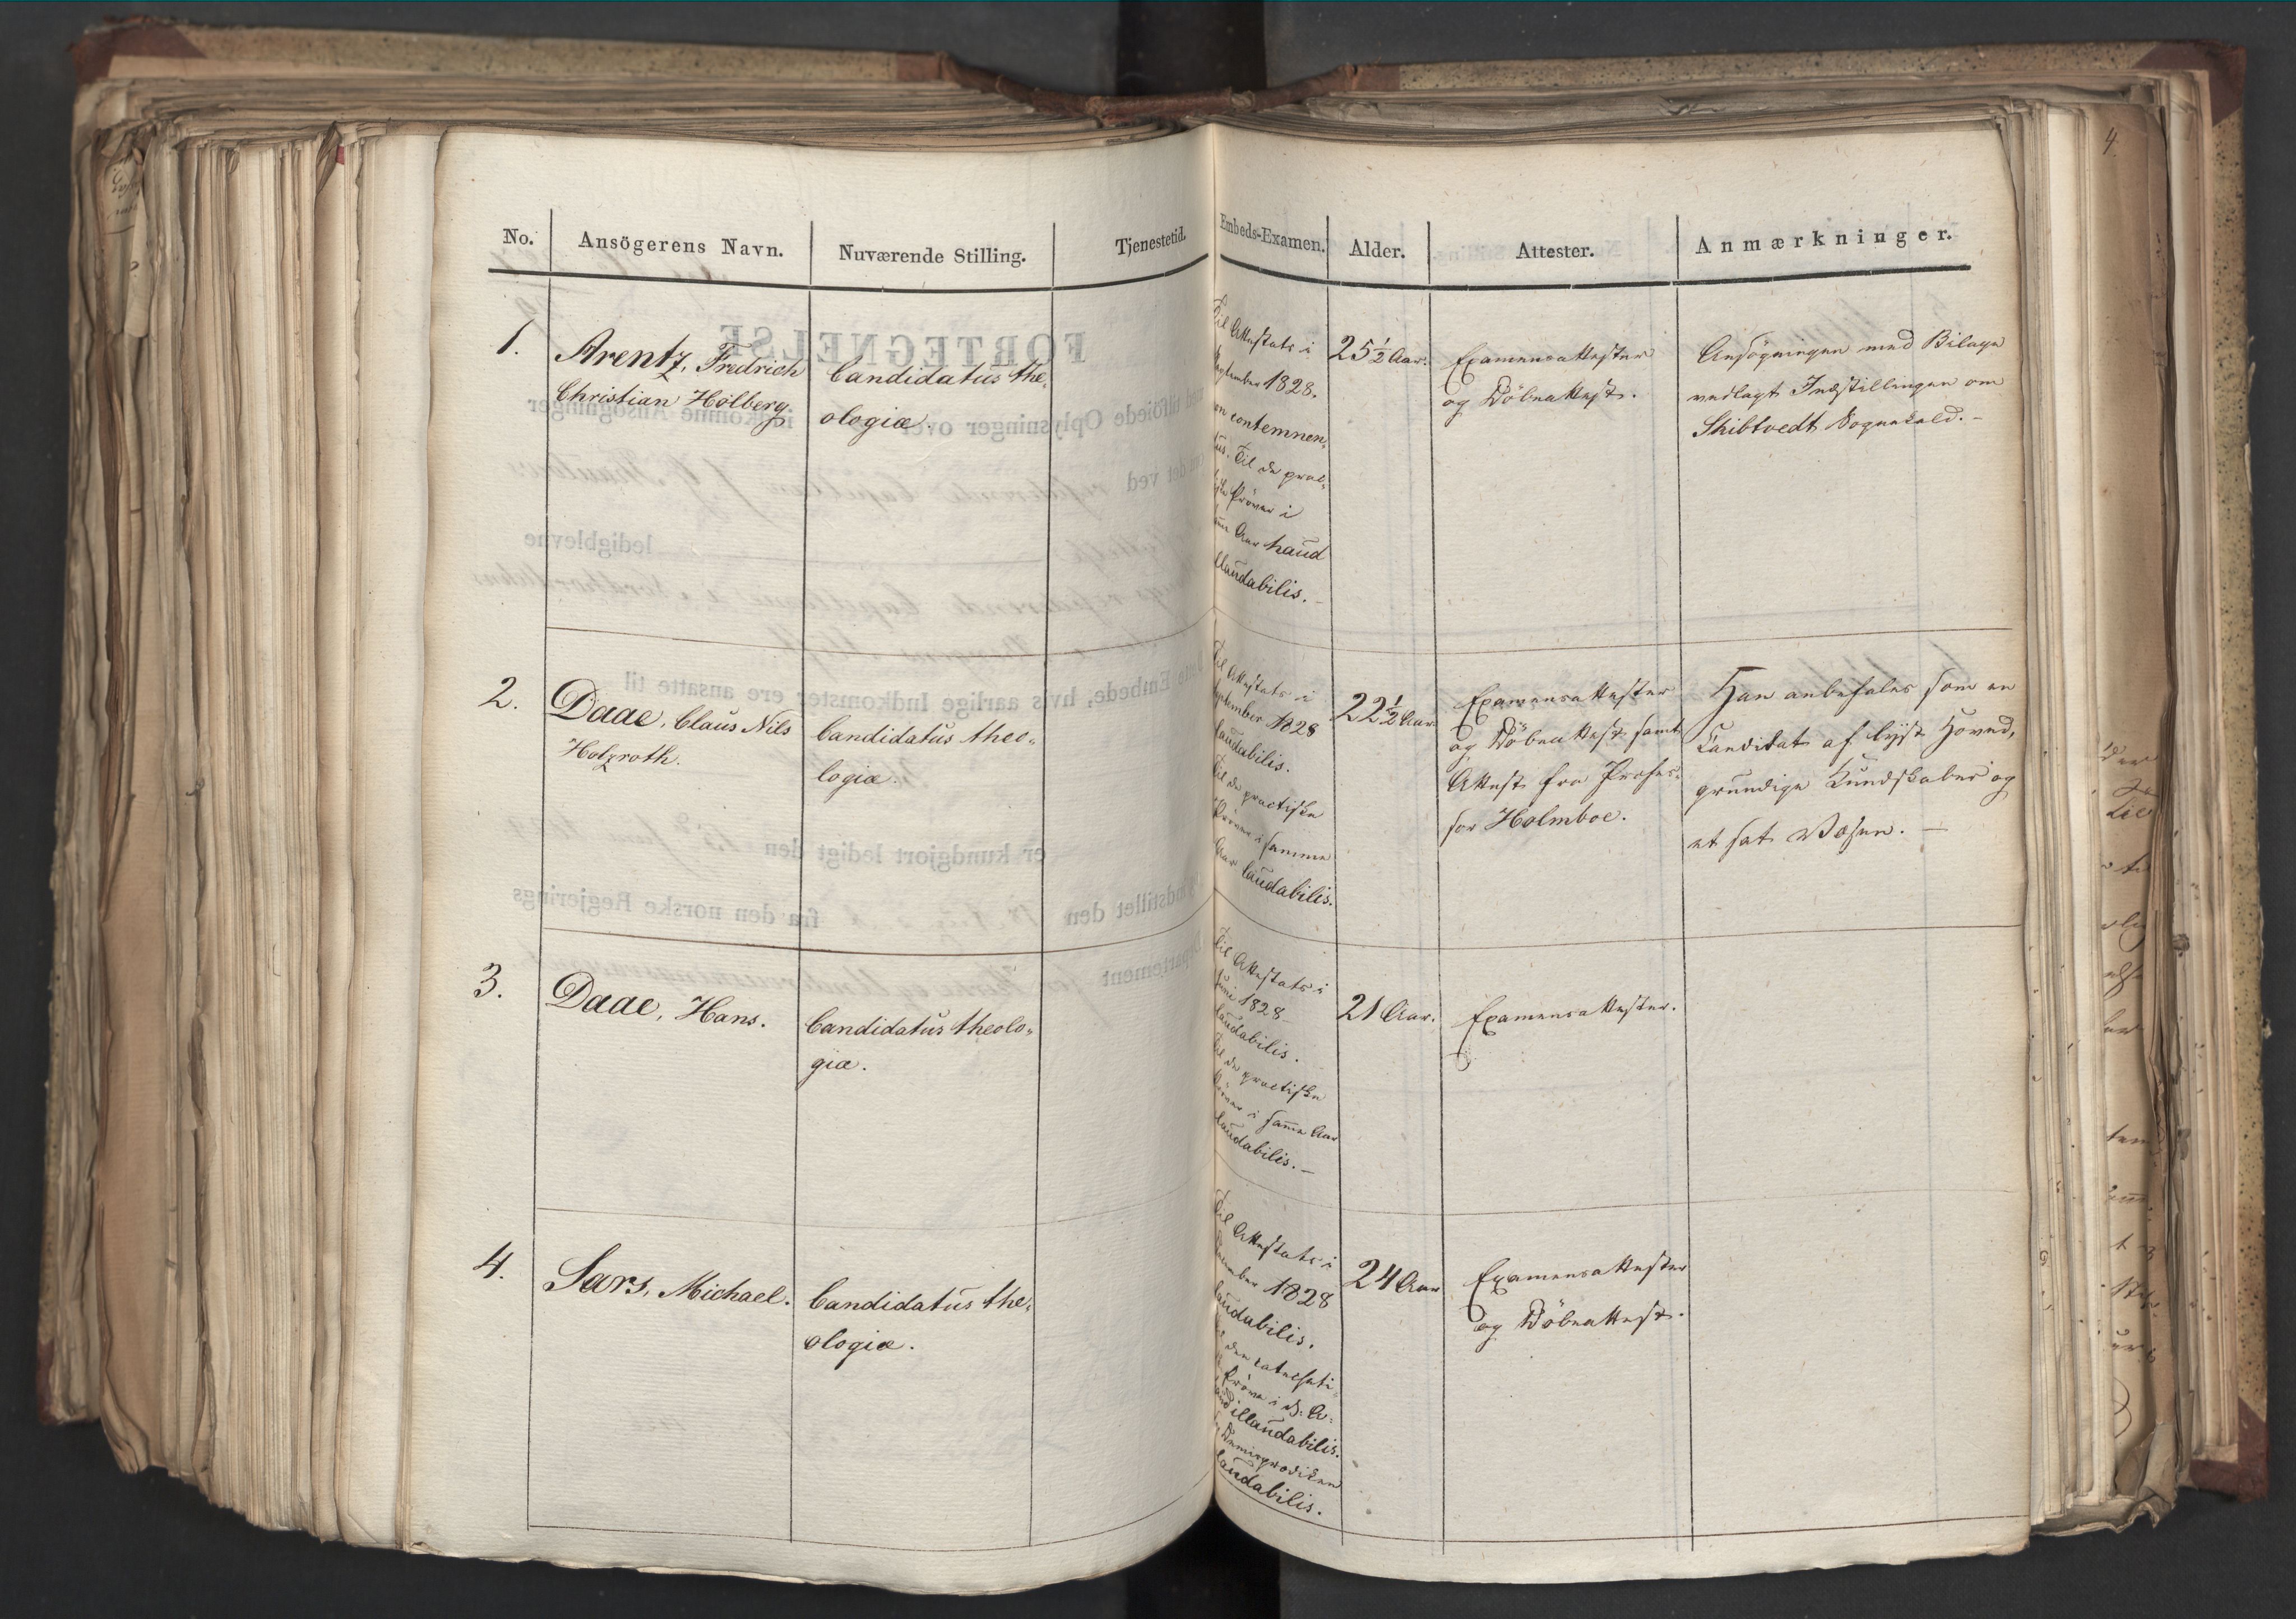 No.
Ansögerens Navn.
Nuværende Stilling.
Tjenestetid.
Embeds-Examen.
Alder.
Attester.
Anmærkninger.
1.
Arentz, Fredrich
Christian Holberg.
Candidatus the-
ologiæ.
Til Attestats i
September 1828.
contemnen-
dus. Til de prac-
Prøver i
Aar haud
illaudabilis.
25½ Aar.
Examensattester
og Döbeattest.
Ansögningen med Bilage
vedlagt Indstillingen om
Skibtvedt Sognekald.-
2.
Daae, Claus Nils
Holzroth.
Candidatus theo-
logiæ.
Til Attestats i
September 1828
laudabilis.
Til de practiske
Prøver i samme
Aar laudabilis.
22½ Aar
Examensattester
og Döbeattest samt
Attest fra Profes-
sor Holmboe.
Han anbefales som en
Candidat af lyst Hoved,
grundige Kundskaber og
et sat Væsen. -
3.
Daae, Hans.
Candidatus theolo-
giæ.
Til Attestats i
Juni 1828
laudabilis.
Til de practiske
Prøver i samme Aar
laudabilis.-
21 Aar.
Examensattester.
4.
Sars, Michael.
Candidatus the-
ologiæ.
Til Attestats i
December 1828
laudabilis.
den catecheti-
Prøve i
haud illaudabilis.
Demisprædiken
laudabilis.
24 Aar
Examensattester
og Döbeattest.
4.